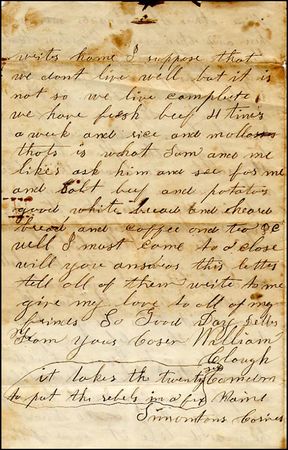 writes home I suppose that
we dont live well but it is
not so we live complete
we have fresh beef 4 times
a week and rice and mollases
thats is what Sam and me
likes ask him and see for me
and salt beef and potatos
good white bread and
bread and coffee and tea &C
well I must come to a close
will you answer this letter
tell all of them write to me
give my love to all of my
frinds So Good Day
From your Cosen William
Clough
it takes the twenty 3rd Camden
to put the rebels in a fix Maine
Simontons Corner